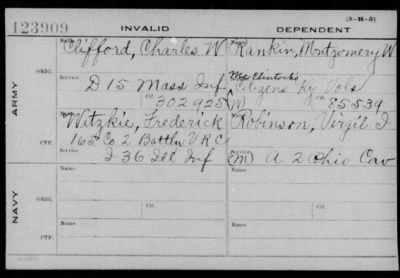 (3-H-5)
123909 INVALID DEPENDENT
Name
Clifford, Charles W Rankin, Montgomery W
ARMY
ORIG.
Service
D 15 Mass Inf McClintocks Citizens Ky Vols
Ctf. 302925 (M) 85539
Witzkie, Frederick Robinson, Virgil I
CTF.
163 Co 2 Battln V R C
I 36 Ill Inf (M) A 2 Ohio Cav
NAVY
Name Name
ORIG.
Service Service
Name Name
CTF.